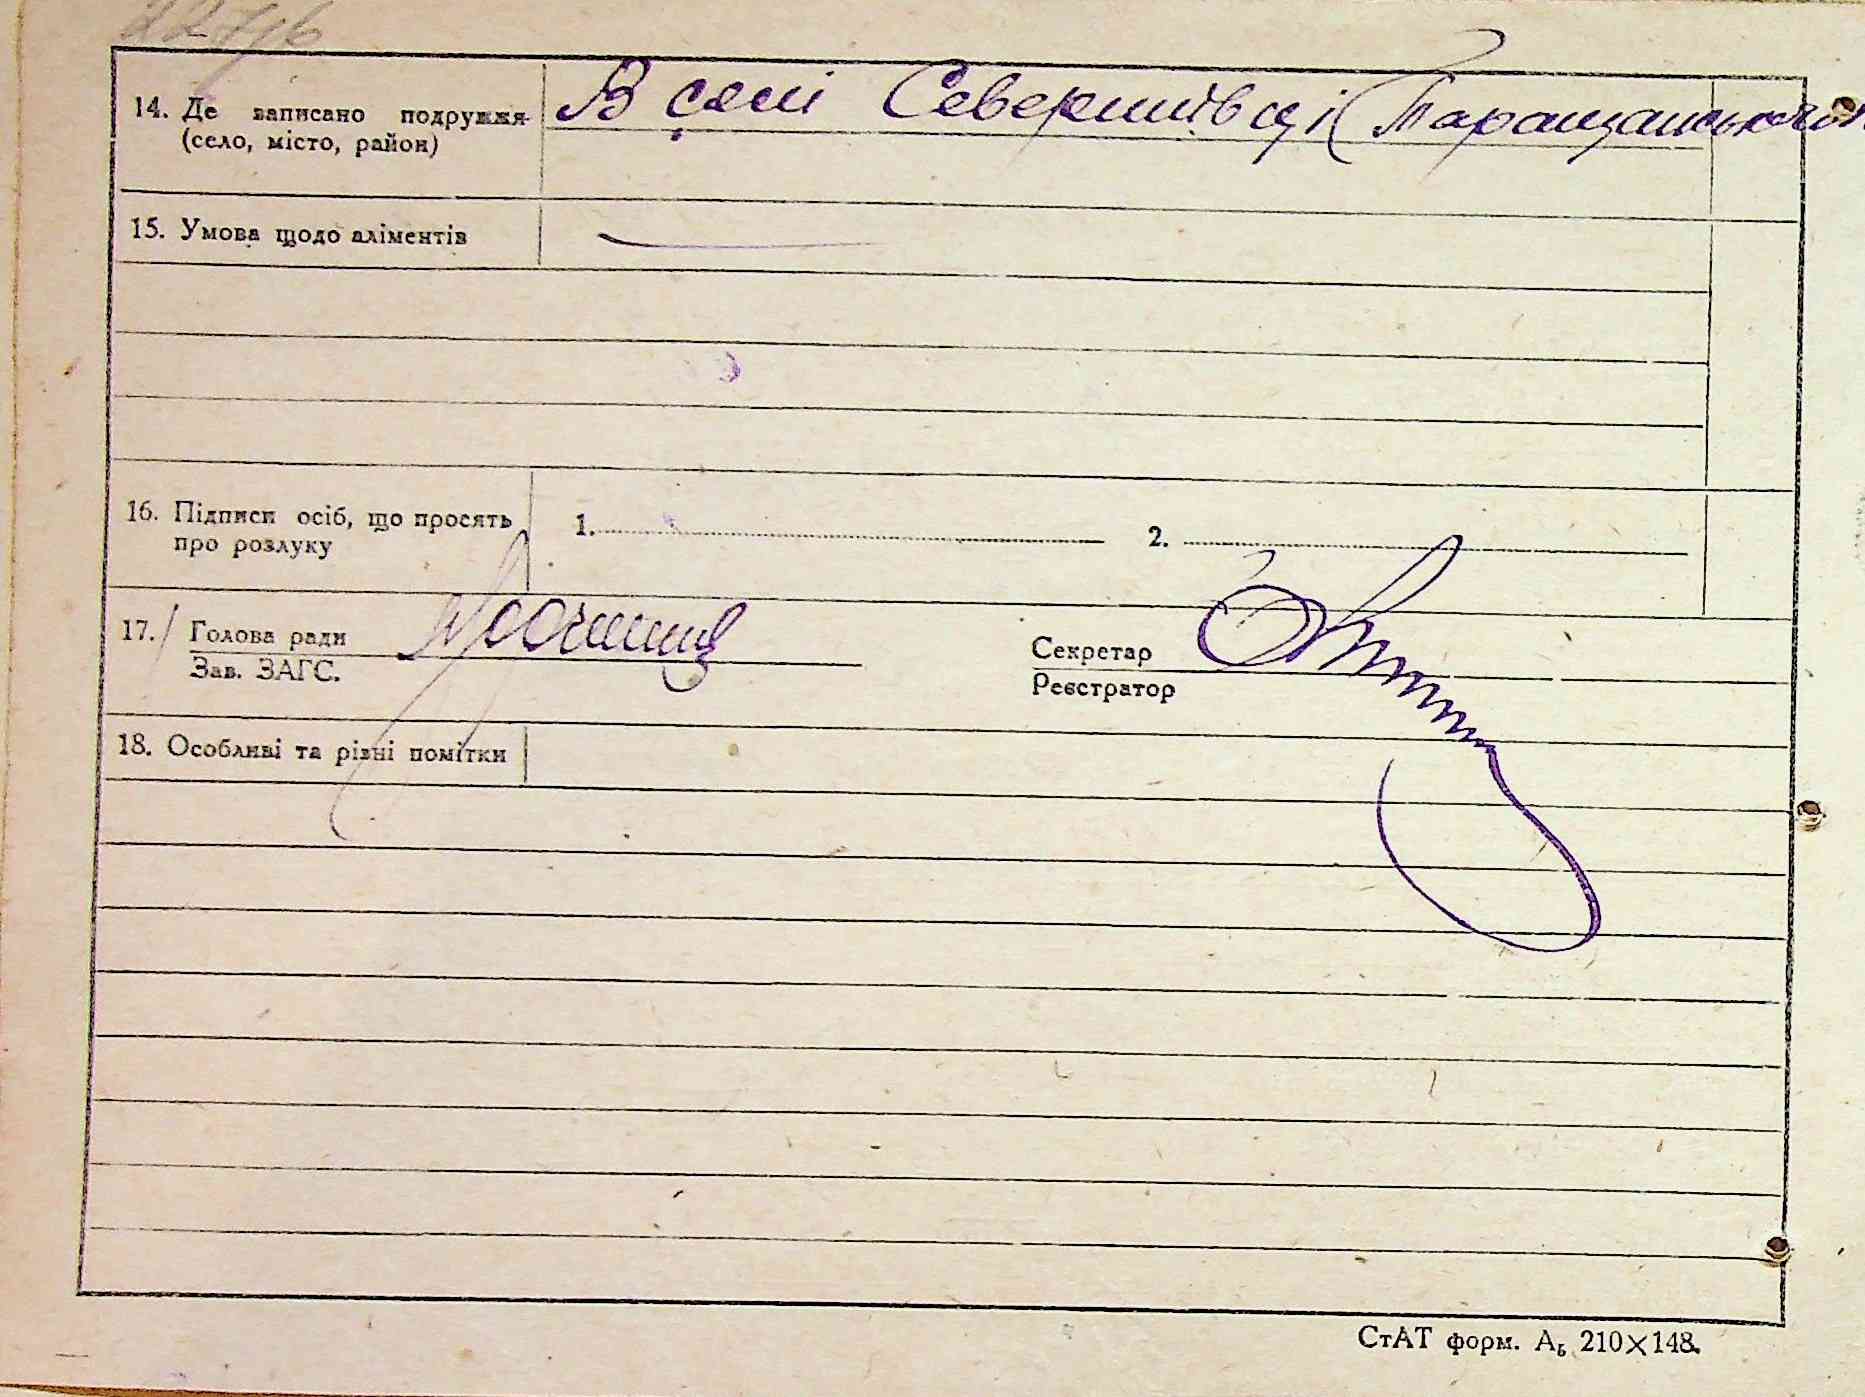 227уб
14. Де записано подружжя (село, місто, район) В селі Северинівці (Таращанського
15. Умова щодо аліментів
16. Підписи осіб, що просять про розлуку 1. 2.
17. Голова ради Секретар
Зав. ЗАГС. Реєстратор
18. Особливі та різні помітки
СтАТ форм. А₅ 210×148.